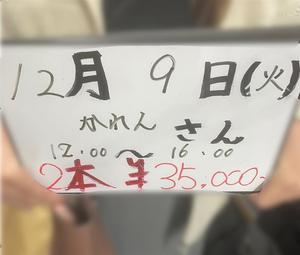 12月 9日(火)
かれん さん
12.00〜16.00
2本 ¥35,000-